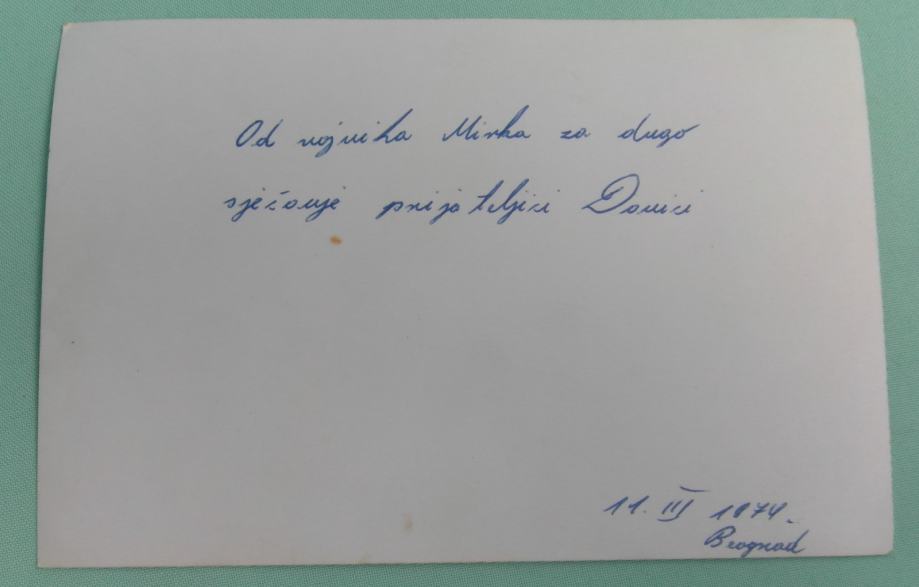 Od vojnika Mirka za dugo
sječanje prijateljici Danici
11. III 1974.
Beograd